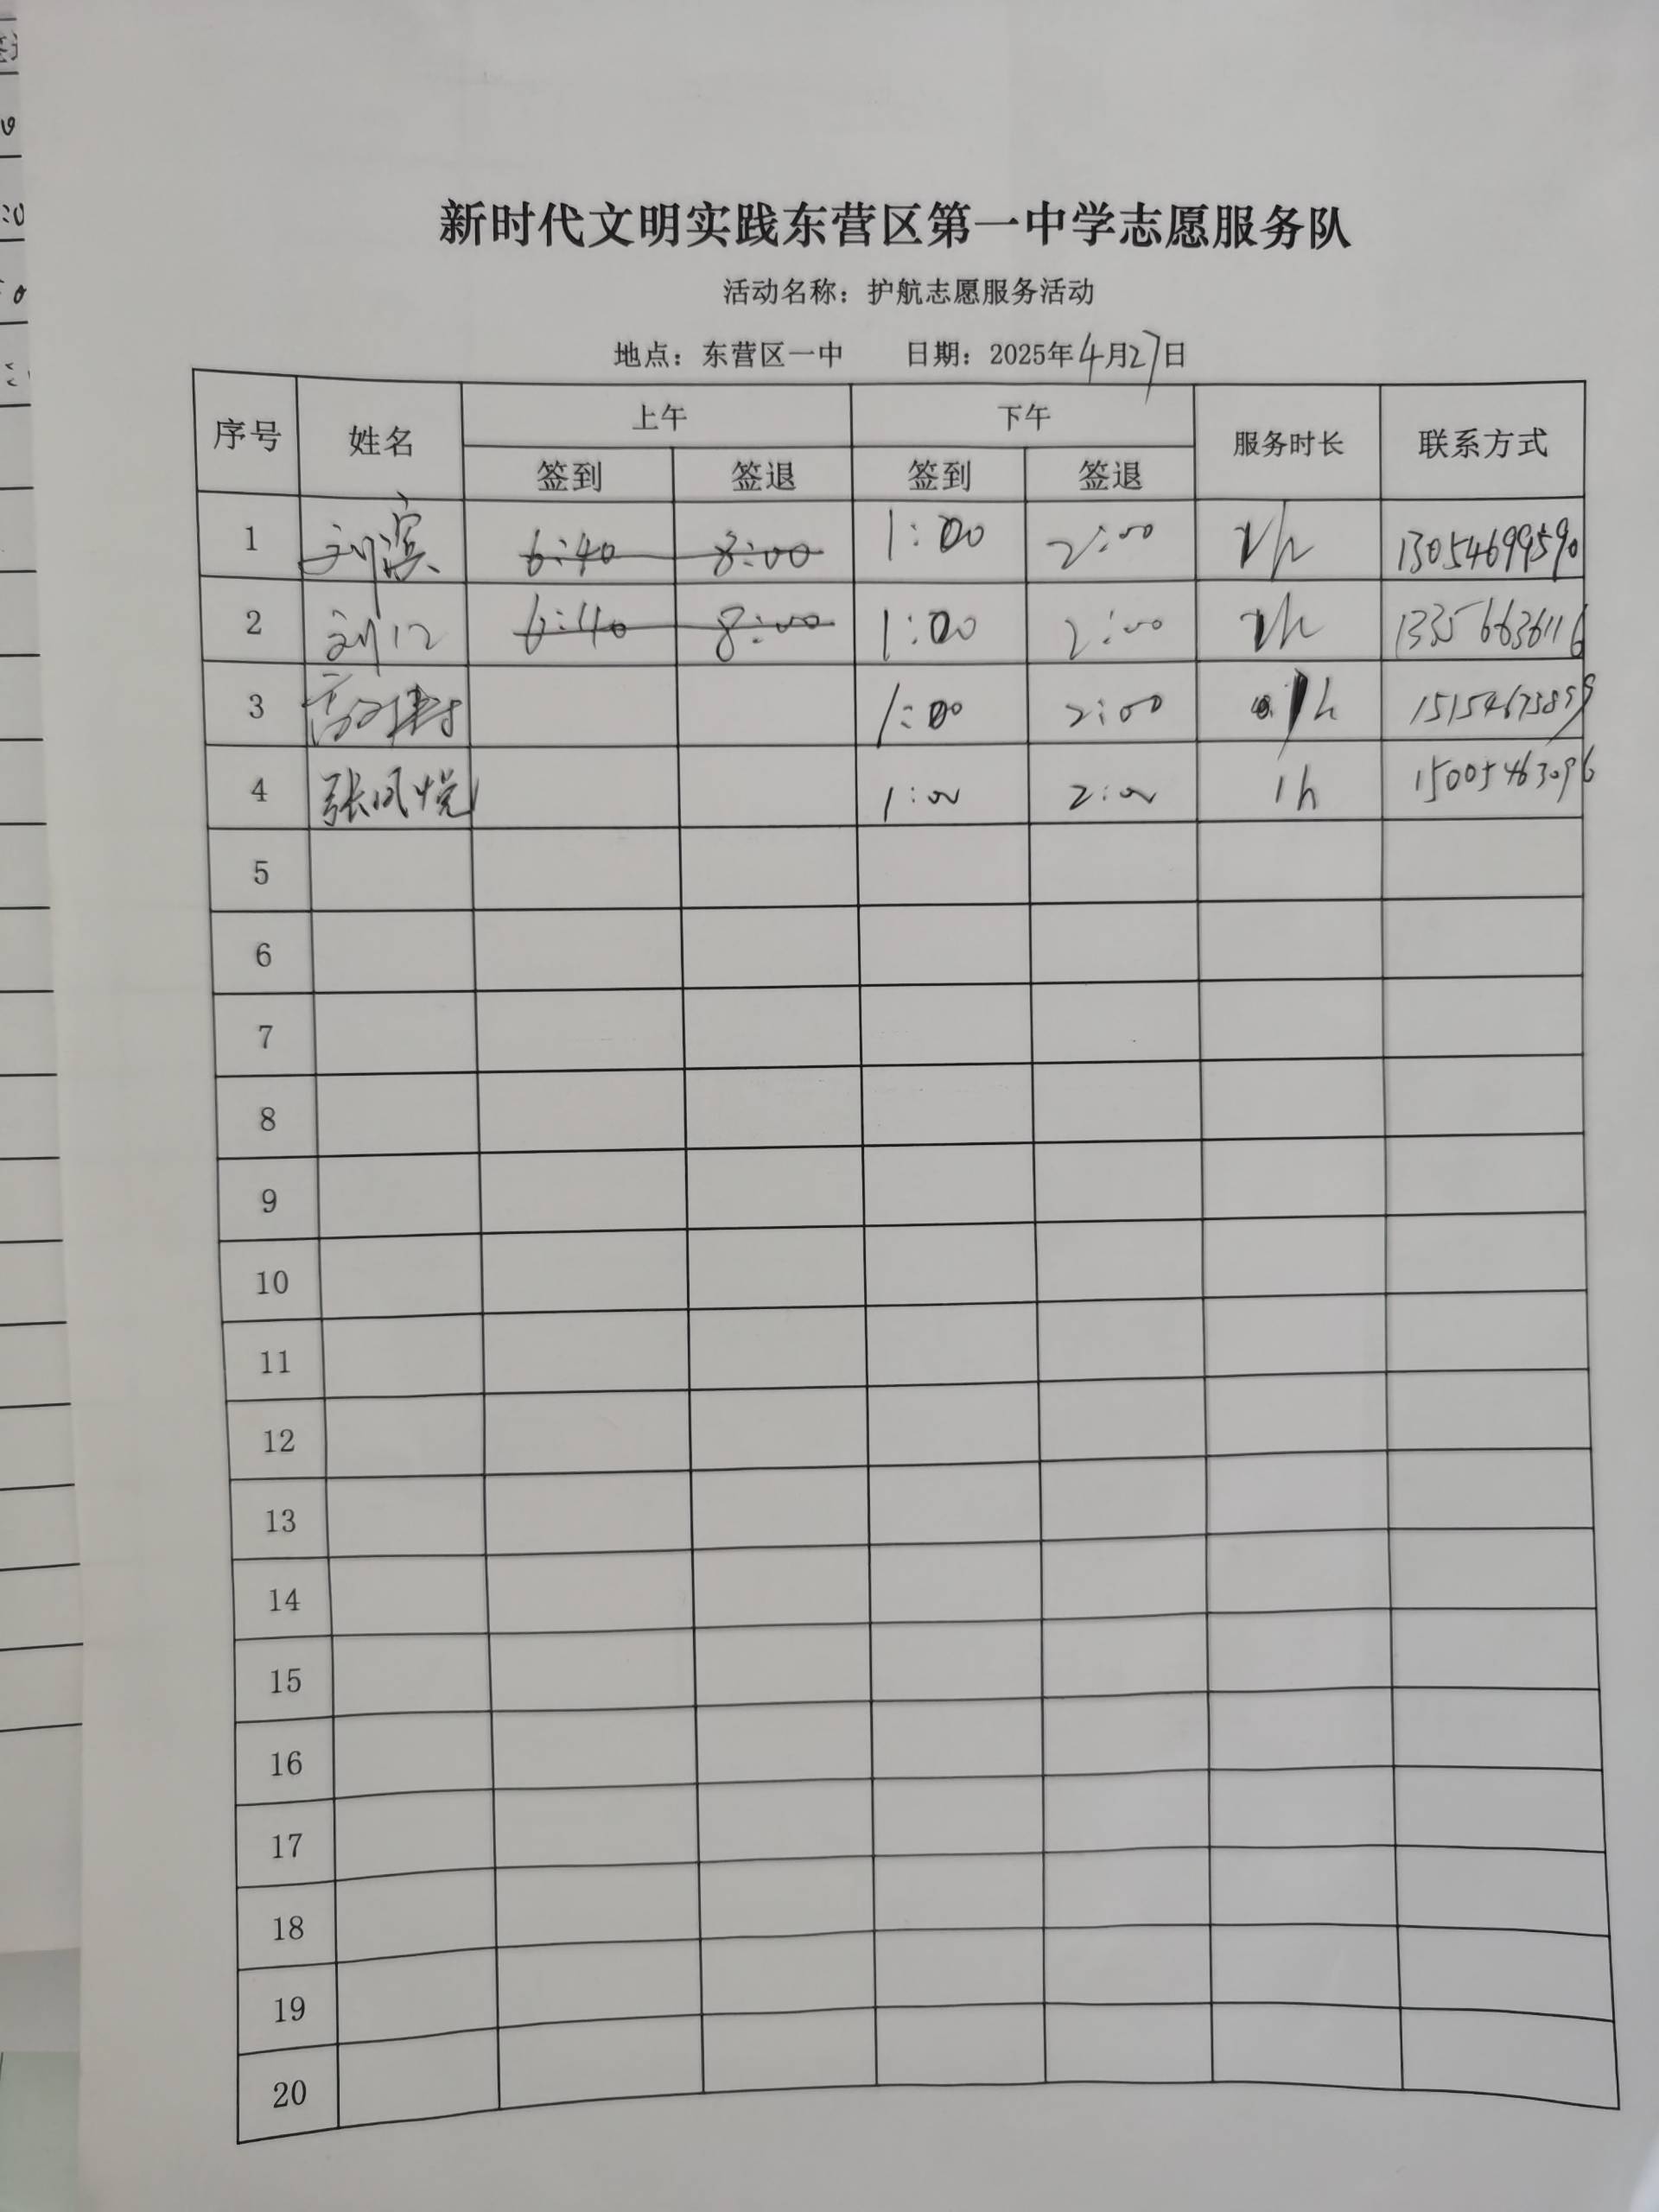 新时代文明实践东营区第一中学志愿服务队
活动名称：护航志愿服务活动
地点：东营区一中 日期：2025年4月27日
序号 姓名 上午 下午 服务时长 联系方式
签到 签退 签到 签退
1 刘滨 6:40 8:00 1:00 2:00 2h 13054699590
2 刘江 6:40 8:00 1:00 2:00 2h 13356636116
3 1:00 2:00 1h 15154673899
4 张风悦 1:00 2:00 1h 15005463096
5
6
7
8
9
10
11
12
13
14
15
16
17
18
19
20